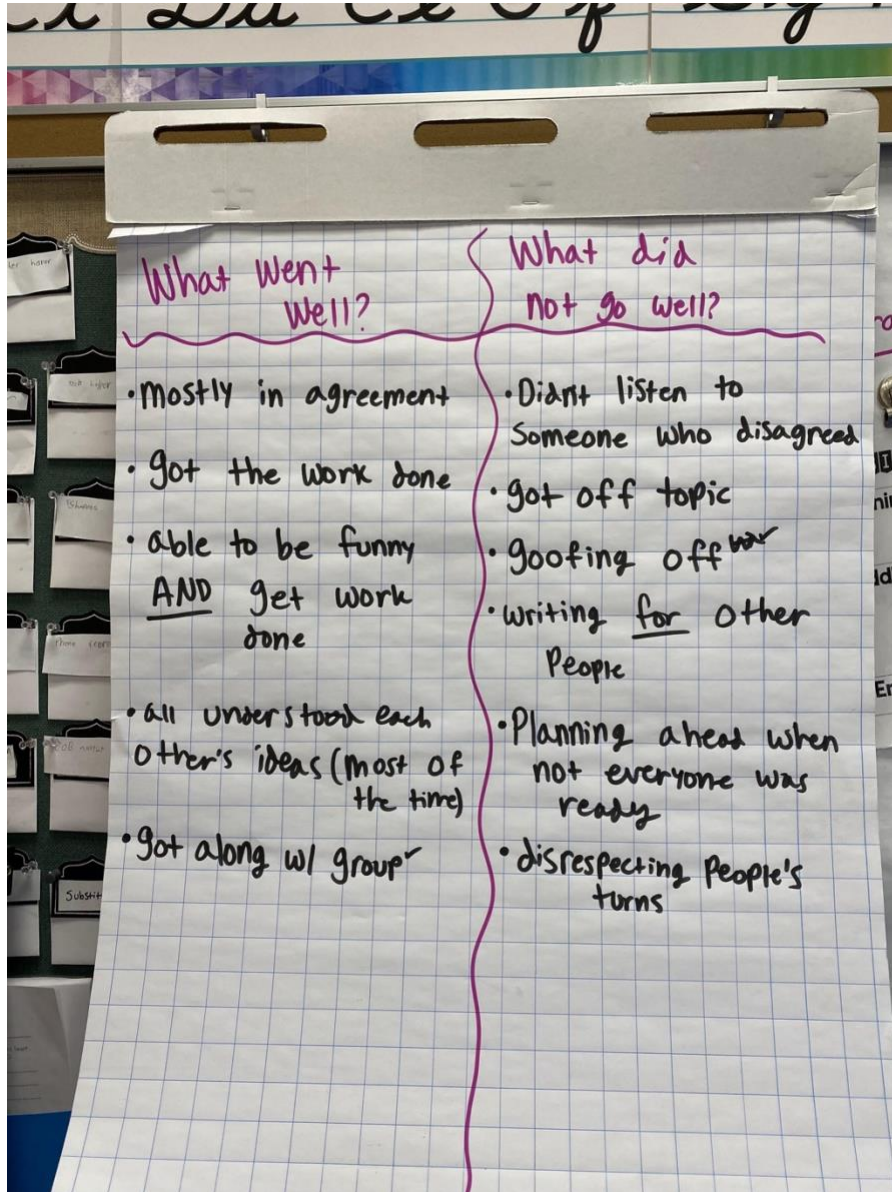 What went
well?
• mostly in agreement
• got the work done
• able to be funny
AND get work
done
• all understood each
other's ideas (most of
the time)
• got along w/ group
What did
not go well?
• Didn't listen to
someone who disagreed
• got off topic
• goofing off
• writing for other
people
• Planning ahead when
not everyone was
ready
• disrespecting people's
turns
Substit